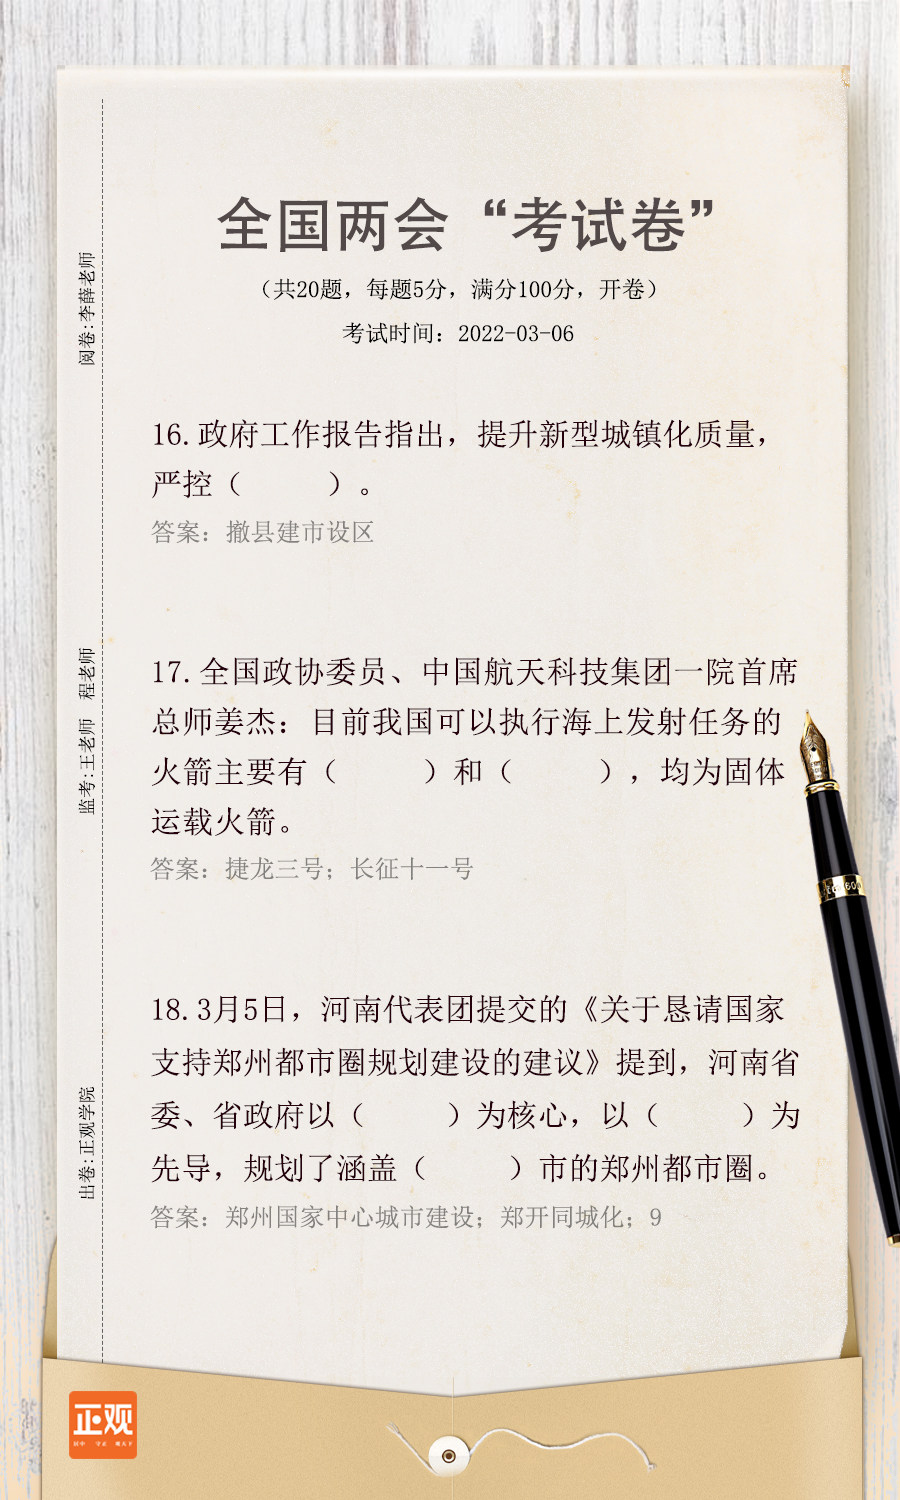 全国两会“考试卷”
（共20题，每题5分，满分100分，开卷）
考试时间：2022-03-06
阅卷：李薛老师
监考：王老师 程老师
出卷：正观学院
16.政府工作报告指出，提升新型城镇化质量，
严控（ ）。
答案：撤县建市设区
17.全国政协委员、中国航天科技集团一院首席
总师姜杰：目前我国可以执行海上发射任务的
火箭主要有（ ）和（ ），均为固体
运载火箭。
答案：捷龙三号；长征十一号
18.3月5日，河南代表团提交的《关于恳请国家
支持郑州都市圈规划建设的建议》提到，河南省
委、省政府以（ ）为核心，以（ ）为
先导，规划了涵盖（ ）市的郑州都市圈。
答案：郑州国家中心城市建设；郑开同城化；9
正观